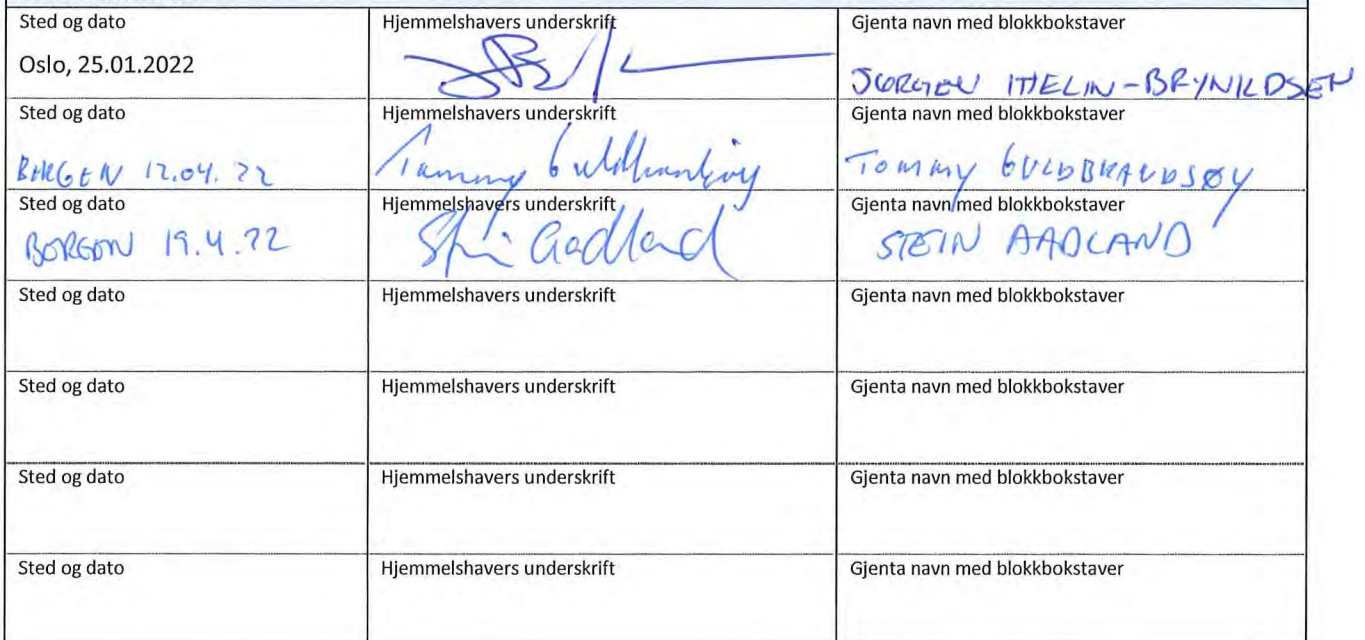 Sted og dato Hjemmelshavers underskrift Gjenta navn med blokkbokstaver
Oslo, 25.01.2022 JØRGEN -BRYNILDSEN
Sted og dato Hjemmelshavers underskrift Gjenta navn med blokkbokstaver
BERGEN 12.04.22 Tommy Guldbrandsøy TOMMY GULDBRANDSØY
Sted og dato Hjemmelshavers underskrift Gjenta navn med blokkbokstaver
BERGEN 19.4.22 Stein Aadland STEIN AADLAND
Sted og dato Hjemmelshavers underskrift Gjenta navn med blokkbokstaver
Sted og dato Hjemmelshavers underskrift Gjenta navn med blokkbokstaver
Sted og dato Hjemmelshavers underskrift Gjenta navn med blokkbokstaver
Sted og dato Hjemmelshavers underskrift Gjenta navn med blokkbokstaver